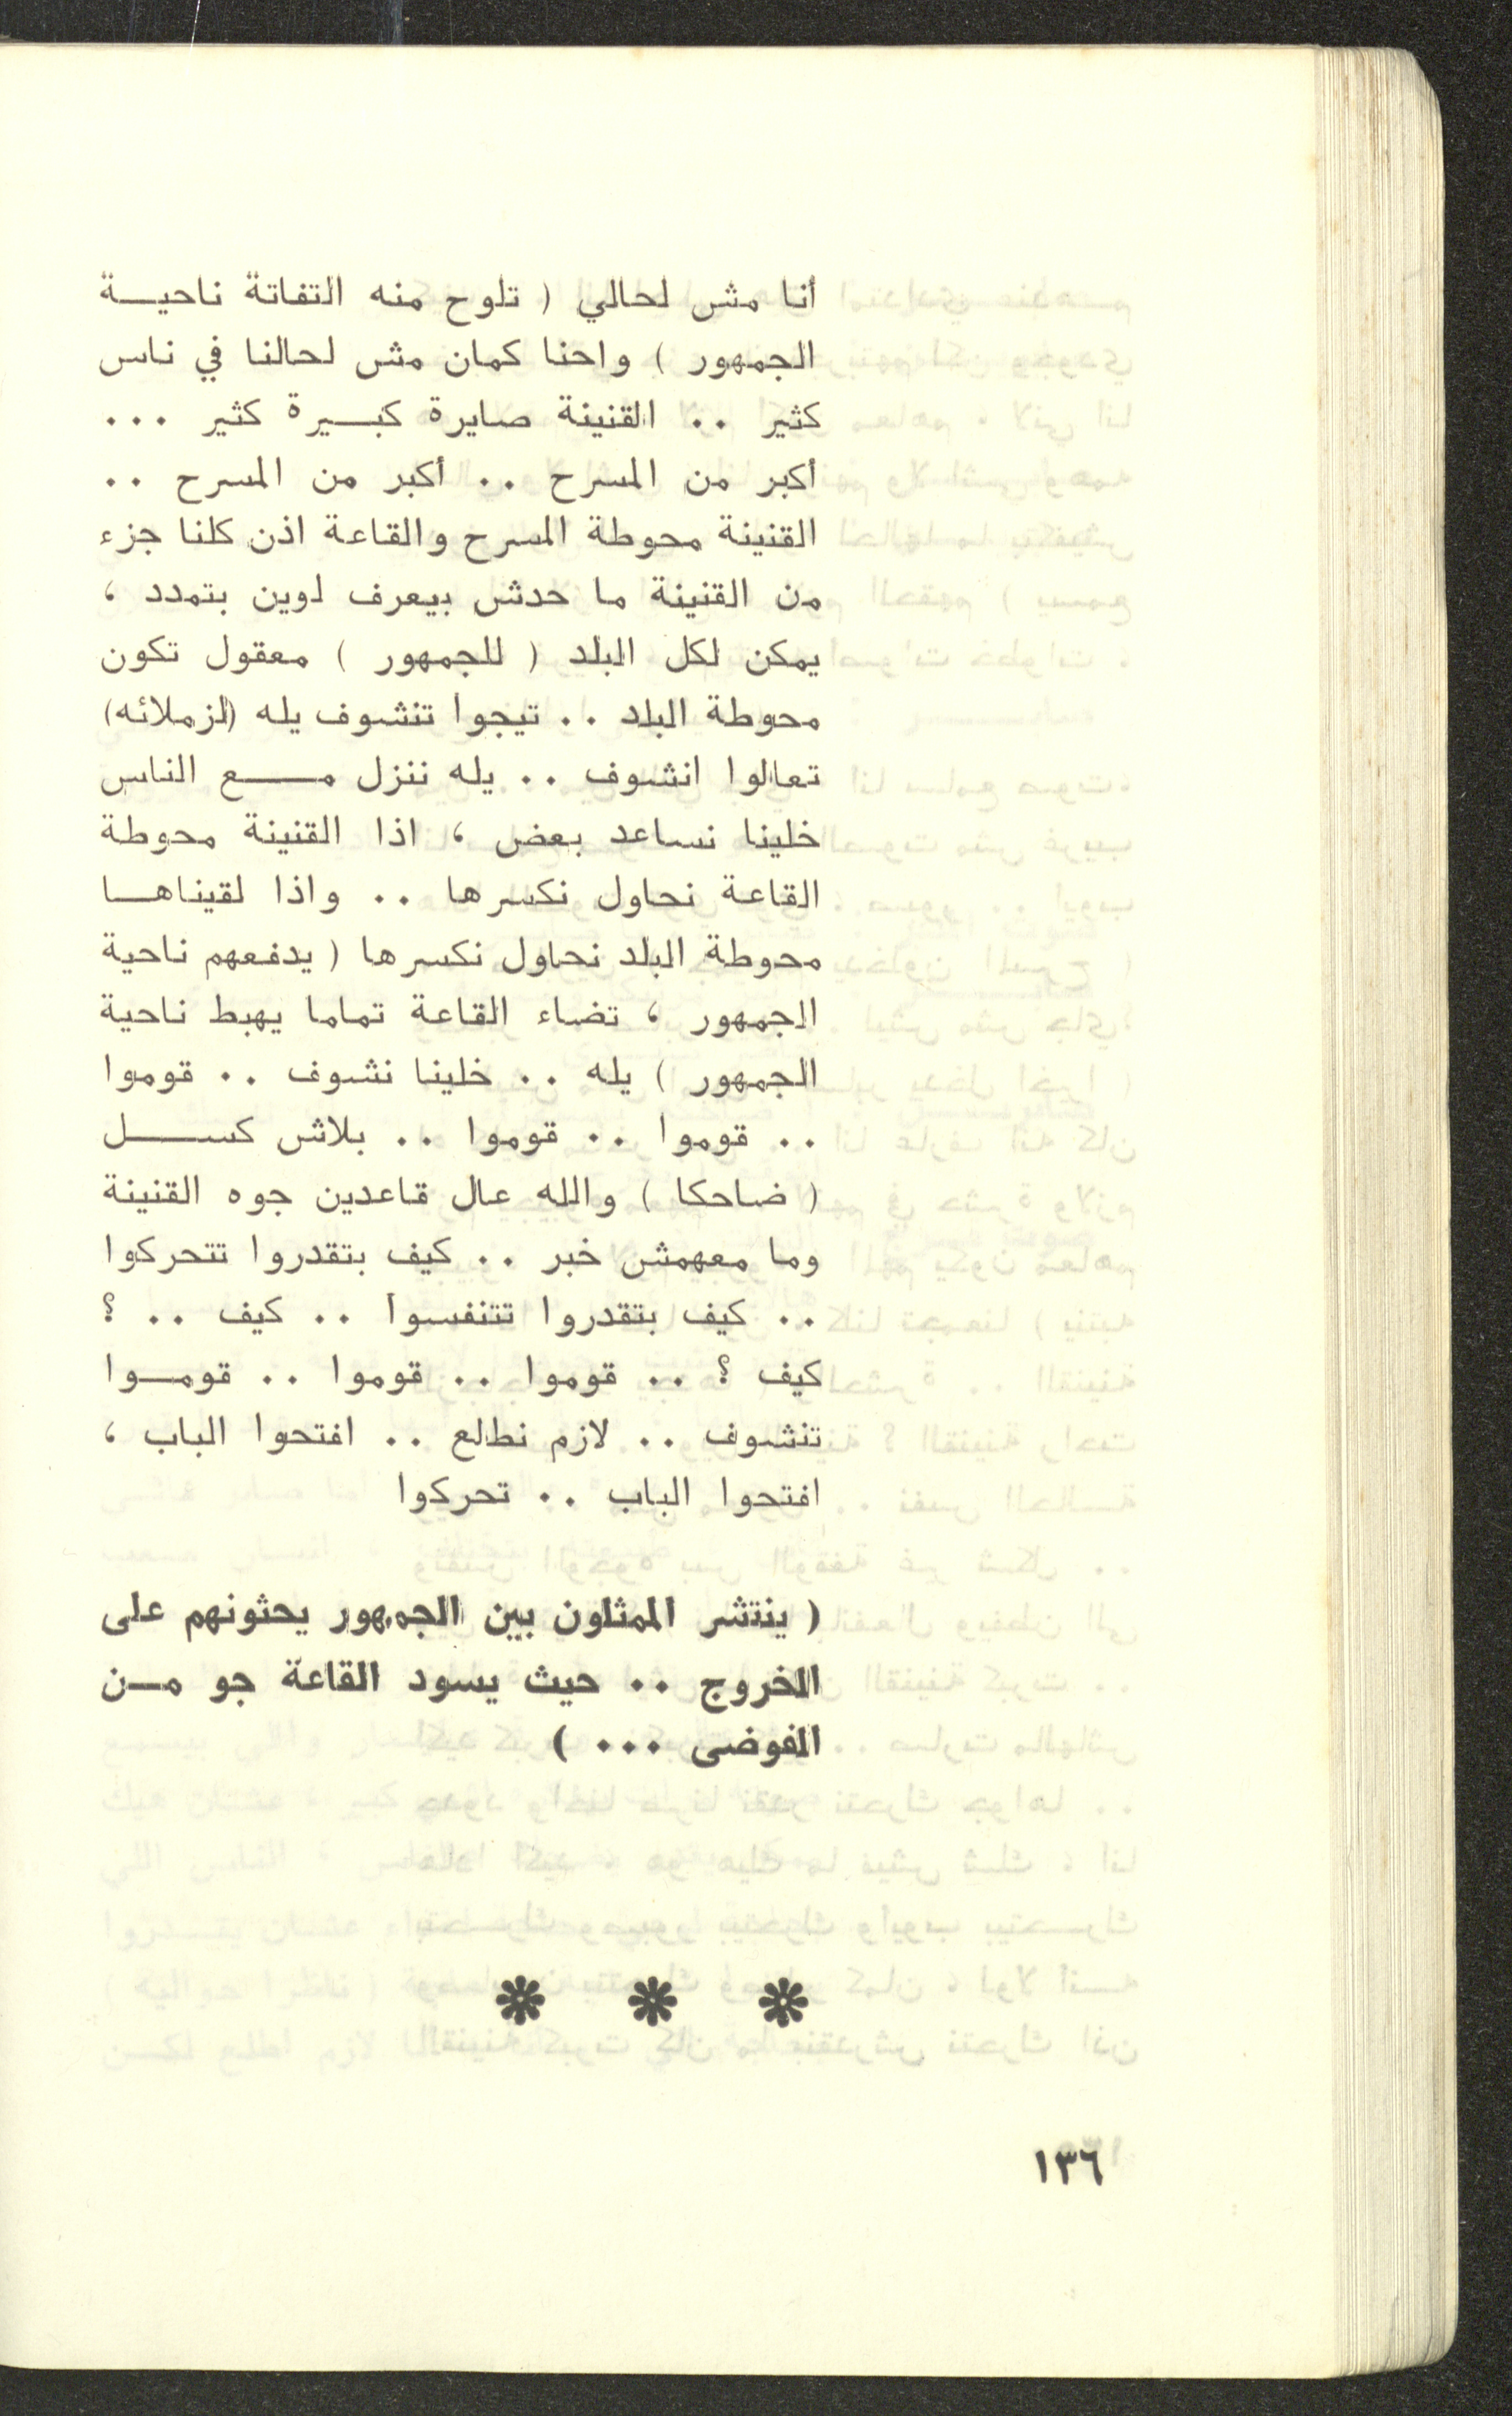 أنا مش لحالي ( تلوح منه التفاتة ناحيـة
الجمهور ) واحنا كمان مش لحالنا في ناس
كثير .. القنينة صايرة كبـيرة كثير ...
أكبر من المسرح .. أكبر من المسرح ..
القنينة محوطة المسرح والقاعة اذن كلنا جزء
من القنينة ما حدش بيعرف لوين بتمدد ،
يمكن لكل البلد ( للجمهور ) معقول تكون
محوطة البلد .. تيجوا تنشوف يله (لزملائه)
تعالوا انشوف .. يله ننزل مـــع الناس
خلينا نساعد بعض ، اذا القنينة محوطة
القاعة نحاول نكسرها .. واذا لقيناهـا
محوطة البلد نحاول نكسرها ( يدفعهم ناحية
الجمهور ، تضاء القاعة تماما يهبط ناحية
الجمهور ) يله .. خلينا نشوف .. قوموا
.. قوموا .. قوموا .. بلاش كســـل
( ضاحكا ) والله عال قاعدين جوه القنينة
وما معهمش خبر .. كيف بتقدروا تتحركوا
.. كيف بتقدروا تتنفسوا .. كيف .. ؟
كيف ؟ .. قوموا .. قوموا .. قومـوا
تنشوف .. لازم نطلع .. افتحوا الباب ،
افتحوا الباب .. تحركوا
( ينتشر الممثلون بين الجمهور يحثونهم على
الخروج .. حيث يسود القاعة جو مـن
الفوضى ... )
١٣٦